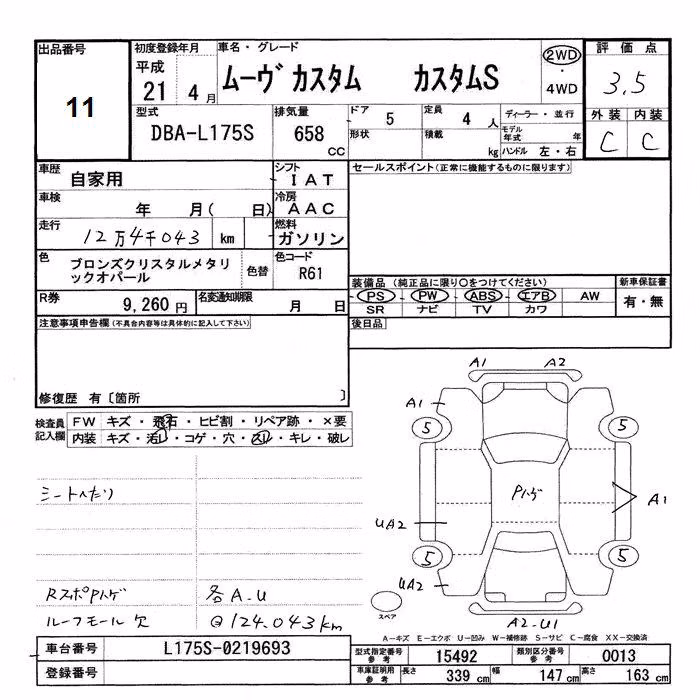 出品番号
11
初度登録年月
平成
21 4 月
車名・グレード
ムーヴ カスタム カスタムS
2WD
・
4WD
評価点
3.5
外装 内装
C C
型式
DBA-L175S
排気量
658
CC
ドア 5
形状
定員 4 人
積載 kg
ディーラー・並行
モデル年式 年
ハンドル 左・右
車歴
自家用
シフト
IAT
車検
年 月( 日)
冷房
AAC
走行
12万4千043 km
燃料
ガソリン
色
ブロンズクリスタルメタリ
ックオパール
色替
色コード
R61
R券
9,260 円
名変通知期限
月 日
セールスポイント(正常に機能するものに限ります)
装備品 (純正品に限り○をつけてください)
PS PW ABS エアB AW
SR ナビ TV カワ
新車保証書
有・無
後日品
注意事項申告欄(不具合内容等は具体的に記入して下さい)
修復歴 有〔箇所 〕
検査員
記入欄
FW キズ・飛石・ヒビ割・リペア跡・×要
内装 キズ・汚レ・コゲ・穴・スレ・キレ・破レ
シートへたり
RスポPハゲ 各A.U
ルーフモール欠 @124.043km
A1 A2
A1
5 5
Pハゲ
A1
UA2
5 5
UA2
スペア
A2-U1
A-キズ E-エクボ U-凹み W-補修跡 S-サビ C-腐食 XX-交換済
車台番号 L175S-0219693
登録番号
型式指定番号
参考
15492
類別区分番号
参考
0013
車庫証明用
参考
長さ 339 cm 幅 147 cm 高さ 163 cm